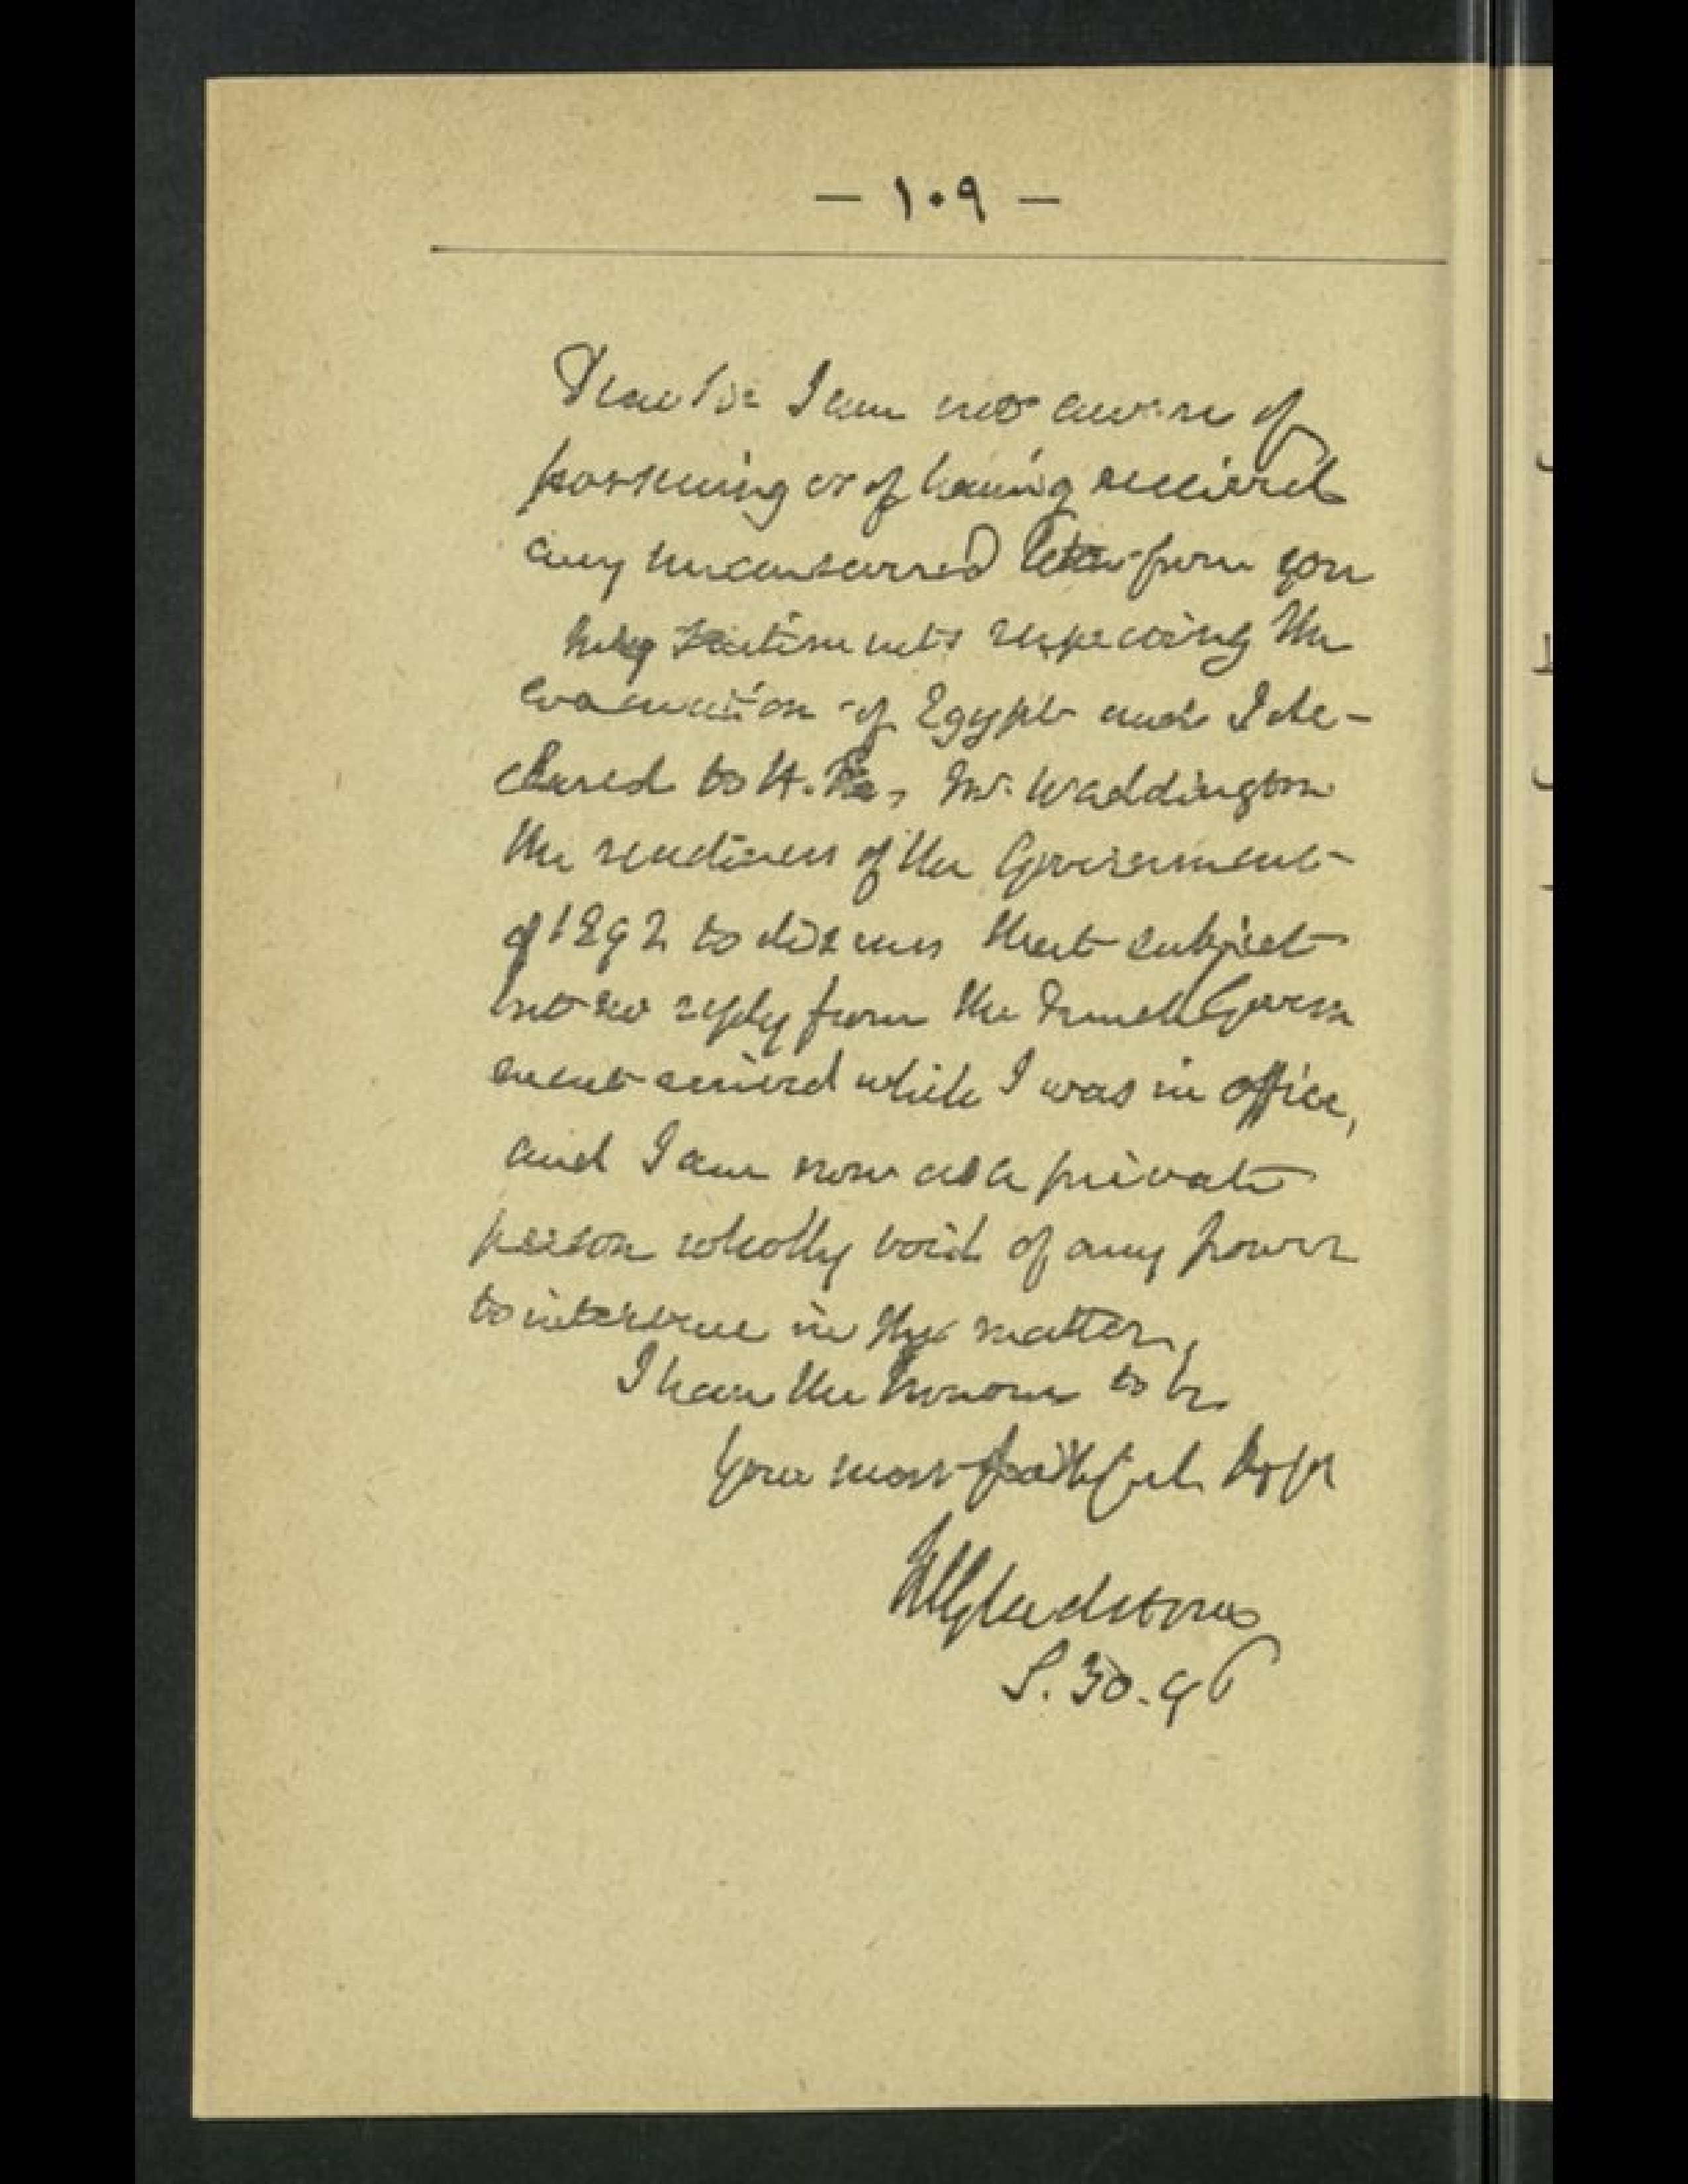 — ١٠٩ —
Dear Sir I am not aware of
possessing or of having received
any unanswered letter from you
My sentiments respecting the
evacuation of Egypt and I de-
clared to Mr. Waddington
the readiness of the Government
of 1892 to discuss that subject
but no reply from the French Govern
ment arrived while I was in office,
and I am now as a private
person wholly void of any power
to intervene in the matter,
I have the honour to be
Your most faithful
WEGladstone
S. 30. 96